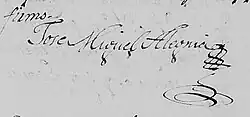 firmo.
Jose Miguel Alegria